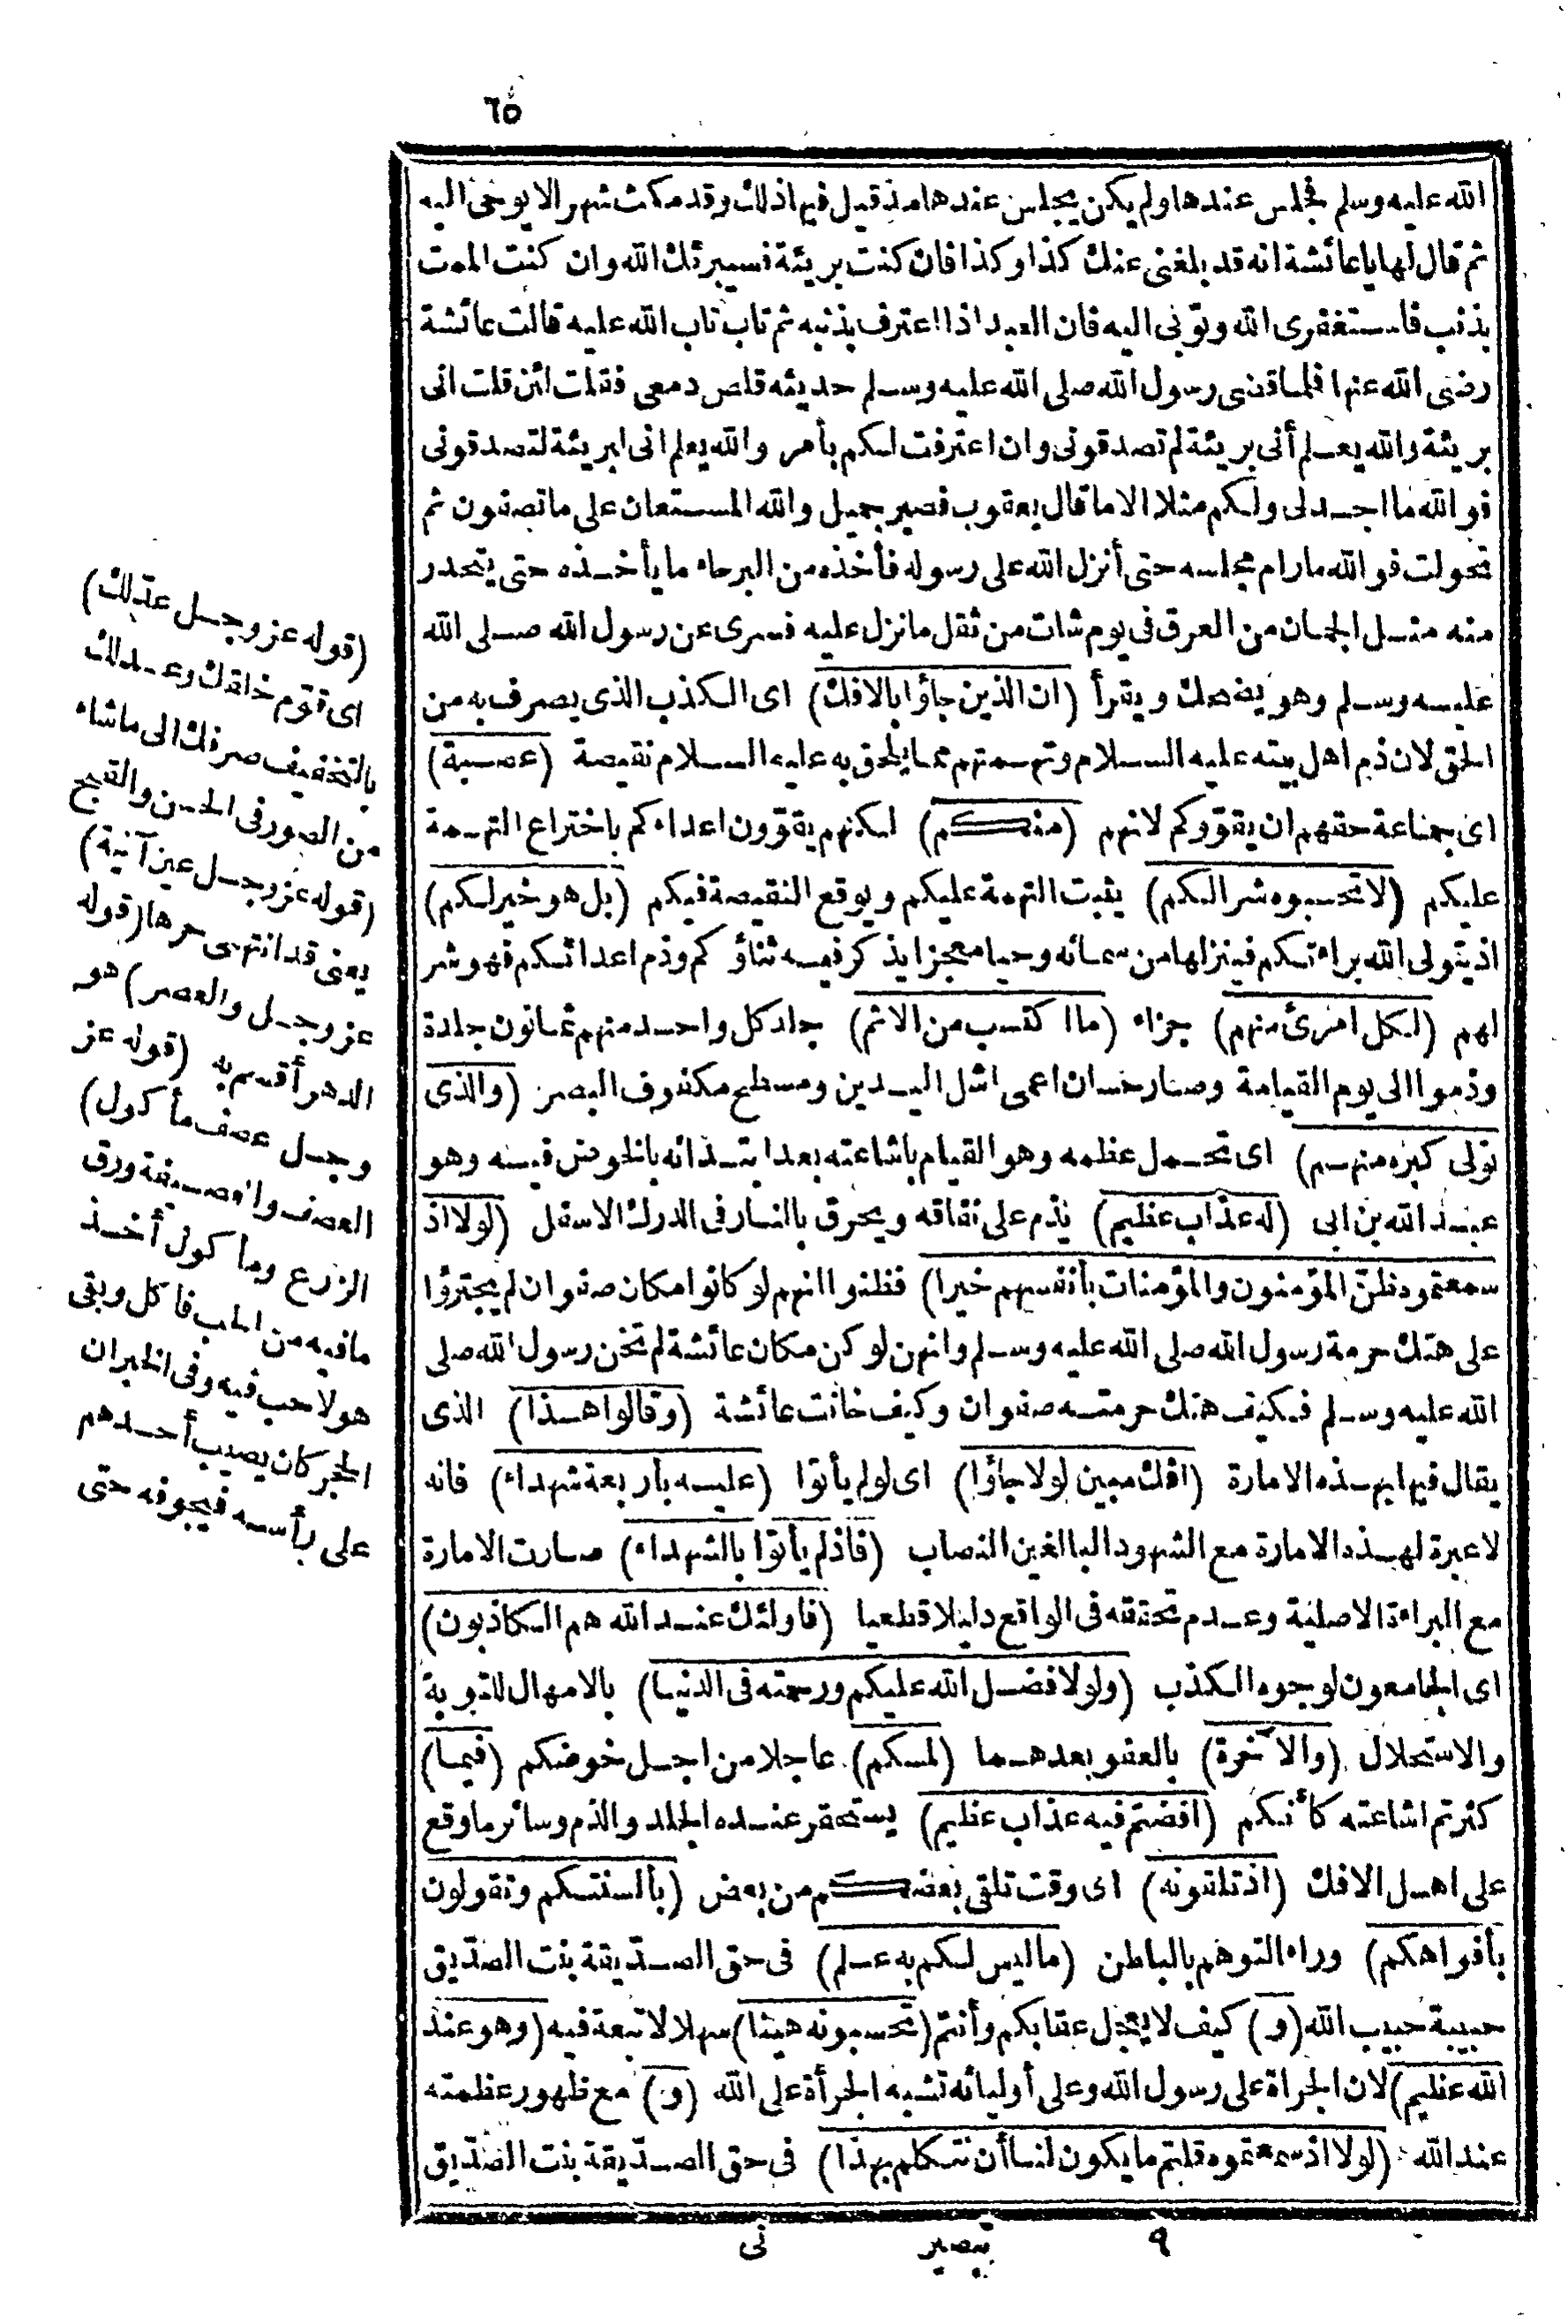 ٦٥
الله عليه وسلم فجلس عندها ولم يكن يجلس عندها مذ قيل فيها ذلك وقد مكث شهرا لا يوحى اليه
ثم قال لها يا عائشة انه قد بلغنى عنك كذا وكذا فان كنت بريئة فسيبرئك الله وان كنت الممت
بذنب فاستغفرى الله وتوبى اليه فان العبد اذا اعترف بذنبه ثم تاب تاب الله عليه قالت عائشة
رضى الله عنها فلما قضى رسول الله صلى الله عليه وسلم حديثه قلص دمعى فقلت لئن قلت انى
بريئة والله يعلم أنى بريئة لم تصدقونى وان اعترفت لكم بأمر والله يعلم انى لبريئة لتصدقونى
فوالله ما اجد لى ولكم مثلا الا ما قال يعقوب فصبر جميل والله المستعان على ما تصفون ثم
تحولت فوالله ما رام مجلسه حتى أنزل الله على رسوله فأخذه من البرحاء ما يأخذه حتى يتحدر
منه مثل الجمان من العرق فى يوم شات من ثقل ما نزل عليه فسرى عن رسول الله صلى الله
عليه وسلم وهو يضحك ويقرأ (ان الذين جاؤا بالافك) اى الكذب الذى يصرف به من
الحق لان ذم اهل بيته عليه السلام وتهمتهم مما يلحق به عليه السلام نقيصة (عصبة)
اى جماعة حقهم ان يقوّوكم لانهم (منكم) لكنهم يقوّون اعداءكم باختراع التهمة
عليكم (لا تحسبوه شرا لكم) يثبت التهمة عليكم ويوقع النقيصة فيكم (بل هو خير لكم)
اذ يتولى الله براءتكم فينزلها من سمائه وحيا معجزا يذكر فيه ثناؤكم وذم اعدائكم فهو شر
لهم (لكل امرئ منهم) جزاء (ما اكتسب من الاثم) جلد كل واحد منهم ثمانون جلدة
وذموا الى يوم القيامة وصار حسان اعمى اشل اليدين ومسطح مكفوف البصر (والذى
تولى كبره منهم) اى تحمل عظمه وهو القيام باشاعته بعد ابتدائه بالخوض فيه وهو
عبد الله بن ابى (له عذاب عظيم) يذم على نفاقه ويحرق بالنار فى الدرك الاسفل (لولا اذ
سمعتموه ظنّ المؤمنون والمؤمنات بأنفسهم خيرا) فظنوا انهم لو كانوا مكان صفوان لم يجترؤا
على هتك حرمة رسول الله صلى الله عليه وسلم وانهن لو كن مكان عائشة لم تخن رسول الله صلى
الله عليه وسلم فكيف هتك حرمته صفوان وكيف خانت عائشة (وقالوا هذا) الذى
يقال فيها بهذه الامارة (افك مبين لولا جاؤا) اى لو لم يأتوا (عليه بأربعة شهداء) فانه
لا عبرة لهذه الامارة مع الشهود البالغين النصاب (فاذ لم يأتوا بالشهداء) صارت الامارة
مع البراءة الاصلية وعدم تحققه فى الواقع دليلا قطعيا (فاولئك عند الله هم الكاذبون)
اى الجامعون لوجوه الكذب (ولولا فضل الله عليكم ورحمته فى الدنيا) بالامهال للتوبة
والاستحلال (والآخرة) بالعفو بعدهما (لمسكم) عاجلا من اجل خوضكم (فيما)
كثرتم اشاعته كأنكم (افضتم فيه عذاب عظيم) يستحقر عنده الجلد والذم وسائر ما وقع
على اهل الافك (اذ تلقونه) اى وقت تلقى بعضكم من بعض (بألسنتكم وتقولون
بأفواهكم) وراء التوهم بالباطن (ما ليس لكم به علم) فى حق الصدّيقة بنت الصدّيق
حبيبة حبيب الله (و) كيف لا يعجل عقابكم وأنتم (تحسبونه هينا) سهلا لا تبعة فيه (وهو عند
الله عظيم) لان الجراة على رسول الله وعلى أوليائه تشبه الجرأة على الله (و) مع ظهور عظمته
عند الله (لولا اذ سمعتموه قلتم ما يكون لنا أن نتكلم بهذا) فى حق الصدّيقة بنت الصدّيق
(قوله عز وجل عدلك)
اى قوّم خلقك وعدلك
بالتخفيف صرفك الى ما شاء
من الصور فى الحسن والقبح
(قوله عز وجل عين آنية)
يعنى قد انتهى حرها (قوله
عز وجل والعصر) هو
الدهر أقسم به (قوله عز
وجل عصف مأكول)
العصف والعصيفة ورق
الزرع ومأكول أخذ
ما فيه من الحب فاكل وبقى
هو لا حب فيه وفى الخبر ان
الحجر كان يصيب أحدهم
على رأسه فيجوفه حتى
٩ تبصير نى